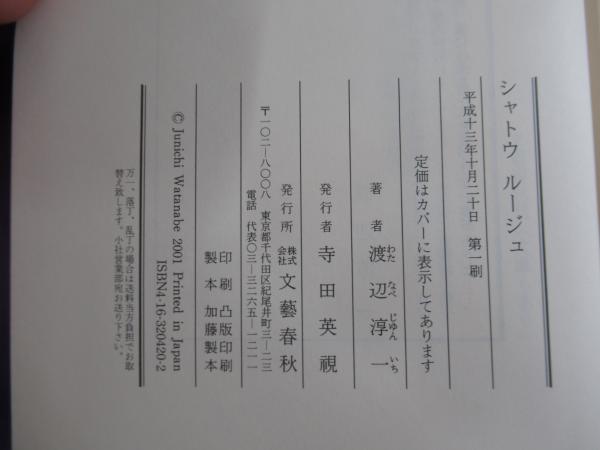 シャトウ ルージュ
平成十三年十月二十日 第一刷
定価はカバーに表示してあります
著者 渡辺淳一
わた なべ じゅん いち
発行者 寺田英視
発行所 株式会社 文藝春秋
〒一〇二―八〇〇八 東京都千代田区紀尾井町三―二三
電話 代表〇三―三二六五―一二一一
印刷 凸版印刷
製本 加藤製本
© Junichi Watanabe 2001 Printed in Japan
ISBN4-16-320420-2
万一、落丁、乱丁の場合は送料当方負担でお取
替え致します。小社営業部宛お送り下さい。